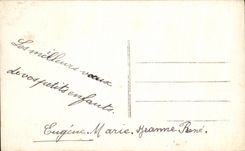 Les meilleurs vœux
de vos petits enfants.
Eugénie. Marie. Jeanne. René.